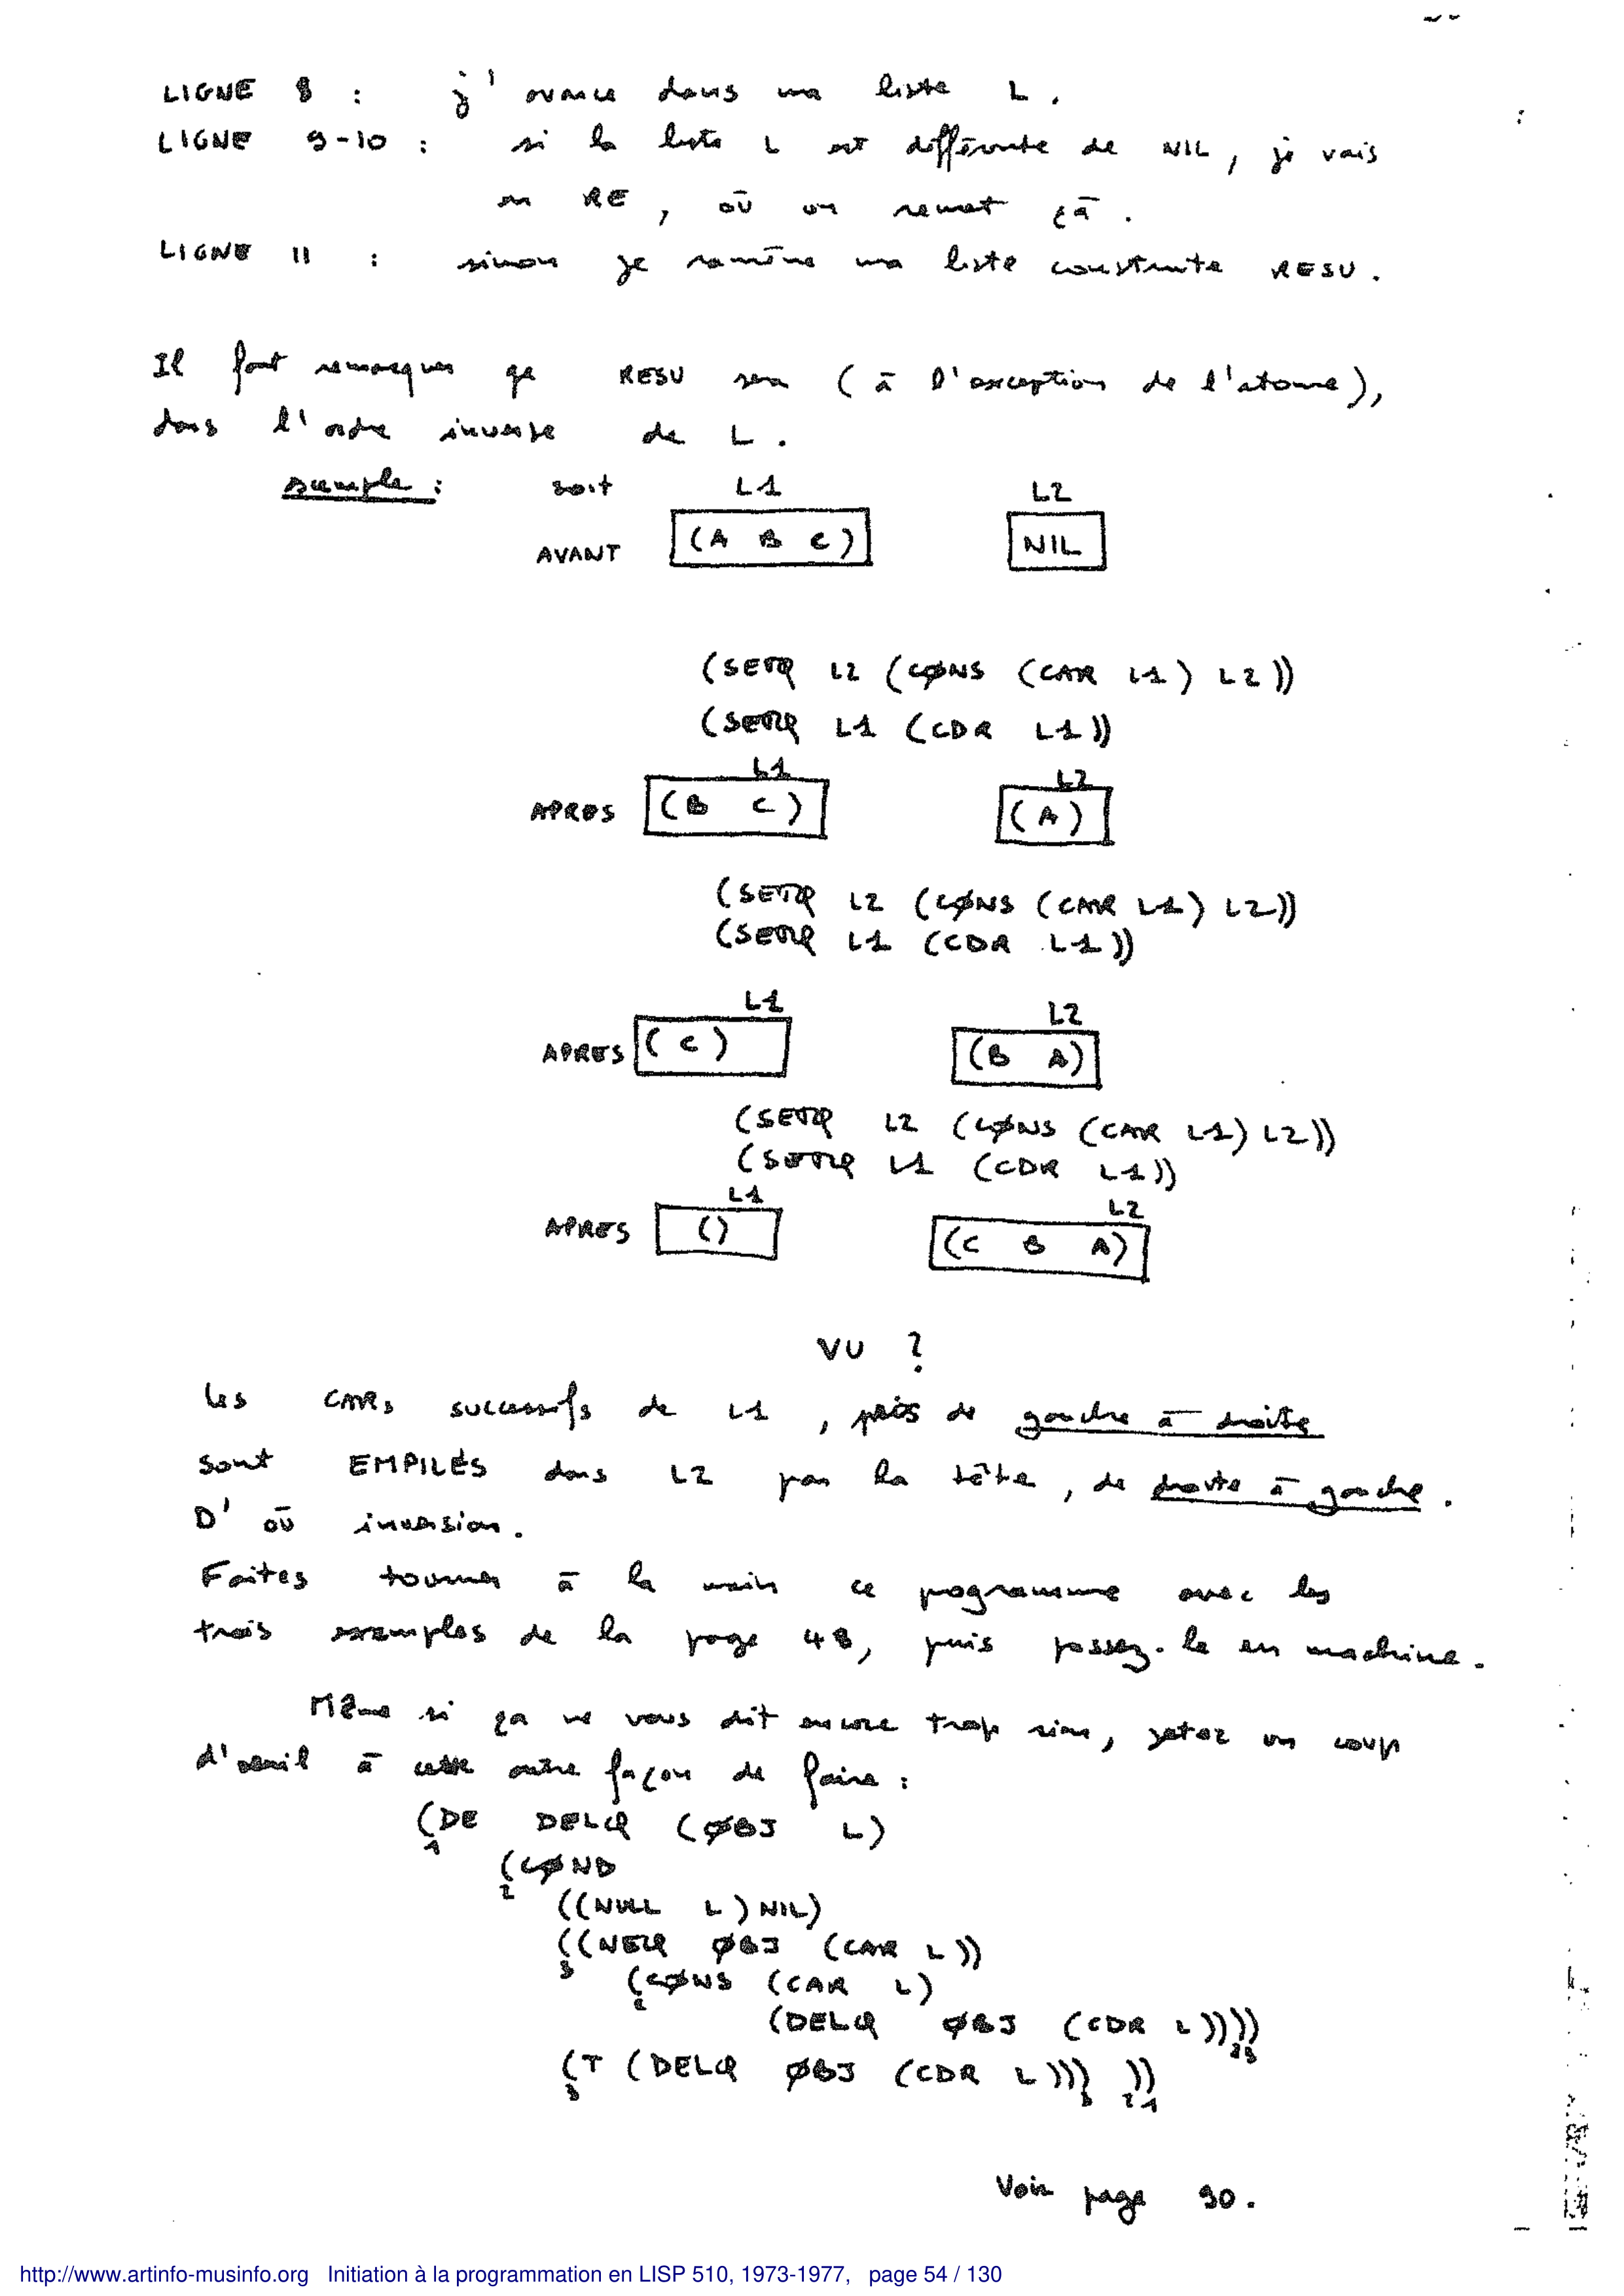 LIGNE 8 : j'avance dans ma liste L.
LIGNE 9-10 : si la liste L est différente de NIL, je vais
en RE, où on remet çà.
LIGNE 11 : sinon je ramène ma liste construite RESU.
Il faut remarquer qe RESU sera (à l'exception de l'atome),
dans l'ordre inverse de L.
exemple : soit L1 L2
AVANT (A B C) NIL
(SETQ L2 (CØNS (CAR L1) L2))
(SETQ L1 (CDR L1))
L1 L2
APRES (B C) (A)
(SETQ L2 (CØNS (CAR L1) L2))
(SETQ L1 (CDR L1))
L1 L2
APRES (C) (B A)
(SETQ L2 (CØNS (CAR L1) L2))
(SETQ L1 (CDR L1))
L1 L2
APRES () (C B A)
VU ?
Les CARs successifs de L1, pris de gauche à droite
sont EMPILÉS dans L2 par la tête, de droite à gauche.
D'où inversion.
Faites tourner à la main ce programme avec les
trois exemples de la page 48, puis passez-le en machine.
Même si ça ne vous dit encore trop rien, jetez un coup
d'oeil à cette autre façon de faire :
(DE DELQ (ØBJ L)
1
(CØND
2
((NULL L) NIL)
((NEQ ØBJ (CAR L))
3
(CØNS (CAR L)
2
(DELQ ØBJ (CDR L))))
23
(T (DELQ ØBJ (CDR L))) ))
3 3 21
Voir page 90.
http://www.artinfo-musinfo.org Initiation à la programmation en LISP 510, 1973-1977, page 54 / 130